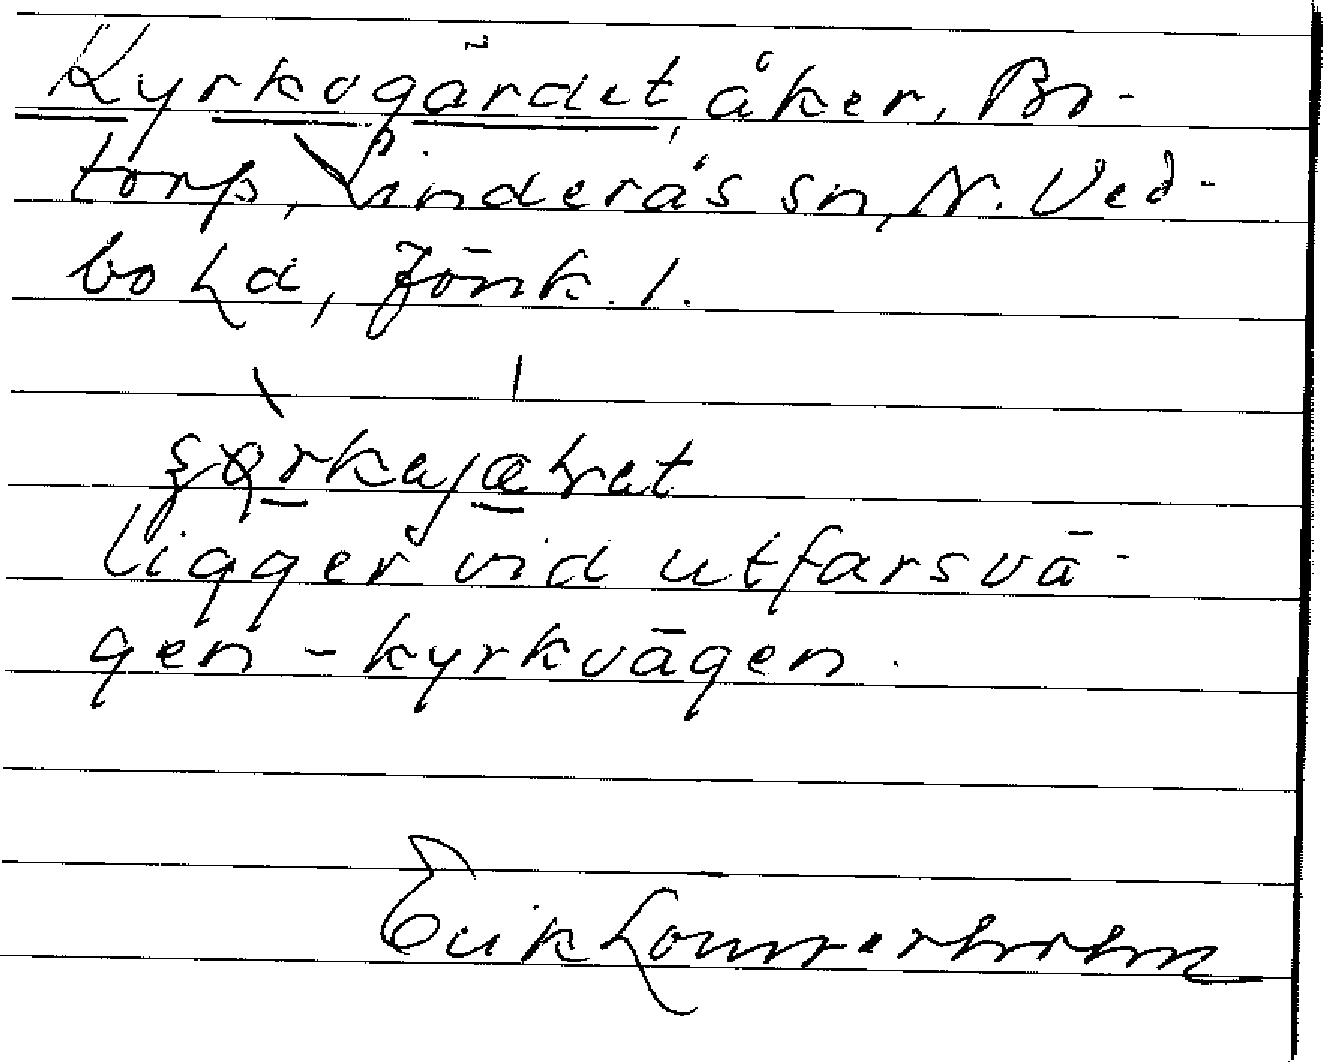 Kyrkogärdet, åker, Bo-
torp, Linderås sn, N. Ved-
bo hd, Jönk. l.
ligger vid utfarsvä-
gen - kyrkvägen.
Erik Lommerholm